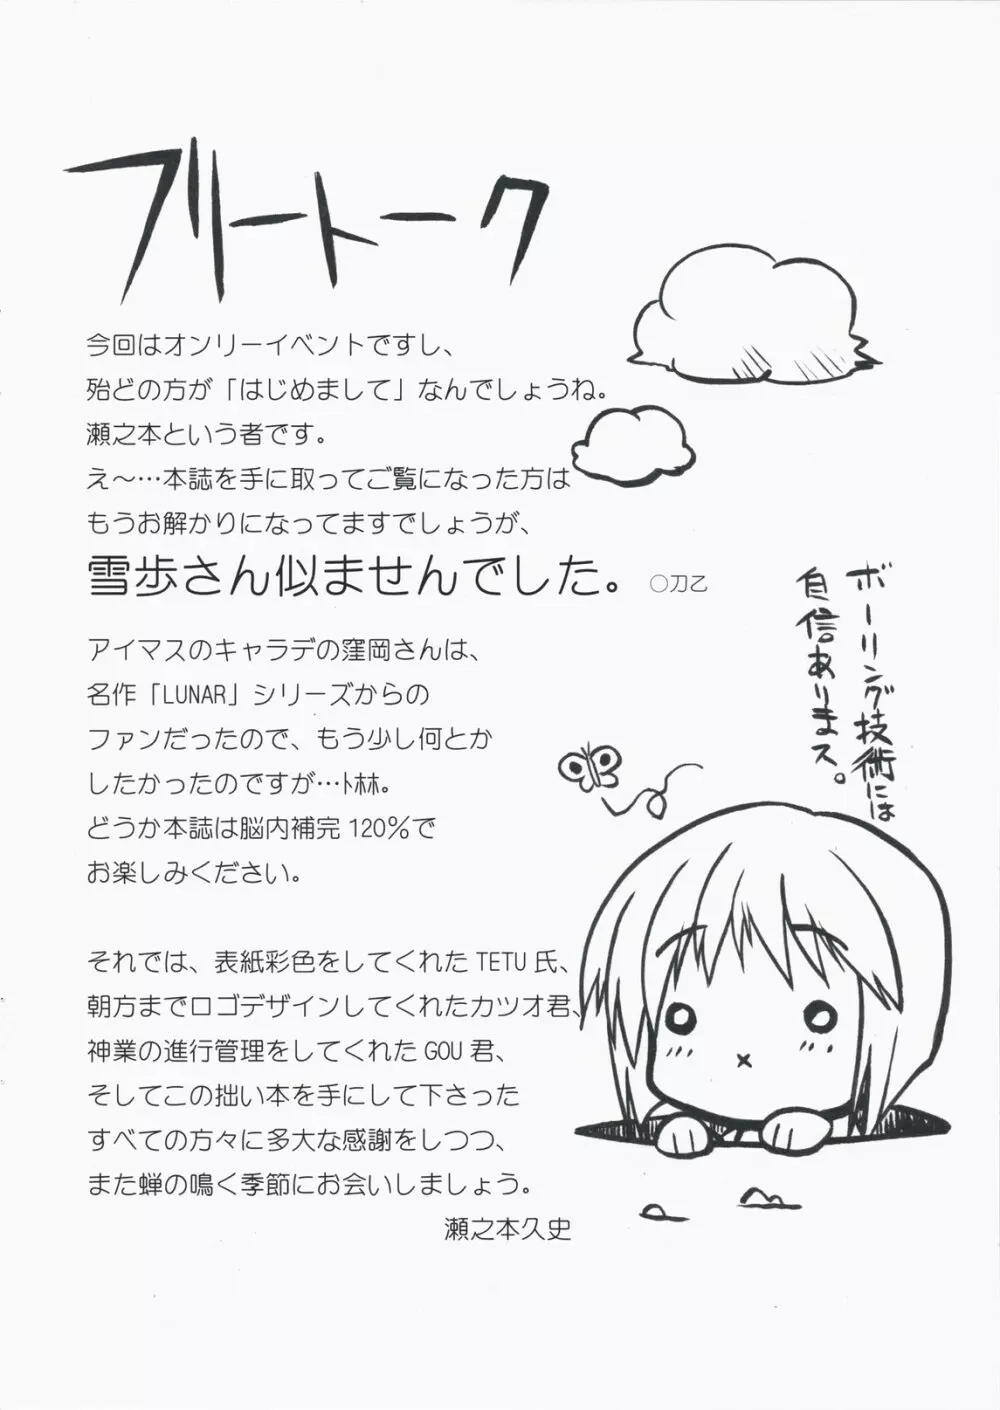 フリートーク
今回はオンリーイベントですし、
殆どの方が「はじめまして」なんでしょうね。
瀬之本という者です。
え～…本誌を手に取ってご覧になった方は
もうお解かりになってますでしょうが、
雪歩さん似ませんでした。 ○刀乙
アイマスのキャラデの窪岡さんは、
名作「LUNAR」シリーズからの
ファンだったので、もう少し何とか
したかったのですが…ﾄ林。
どうか本誌は脳内補完 120％で
お楽しみください。
それでは、表紙彩色をしてくれた TETU 氏、
朝方までロゴデザインしてくれたカツオ君、
神業の進行管理をしてくれた GOU 君、
そしてこの拙い本を手にして下さった
すべての方々に多大な感謝をしつつ、
また蝉の鳴く季節にお会いしましょう。
瀬之本久史
ボーリング技術には
自信ありまス。